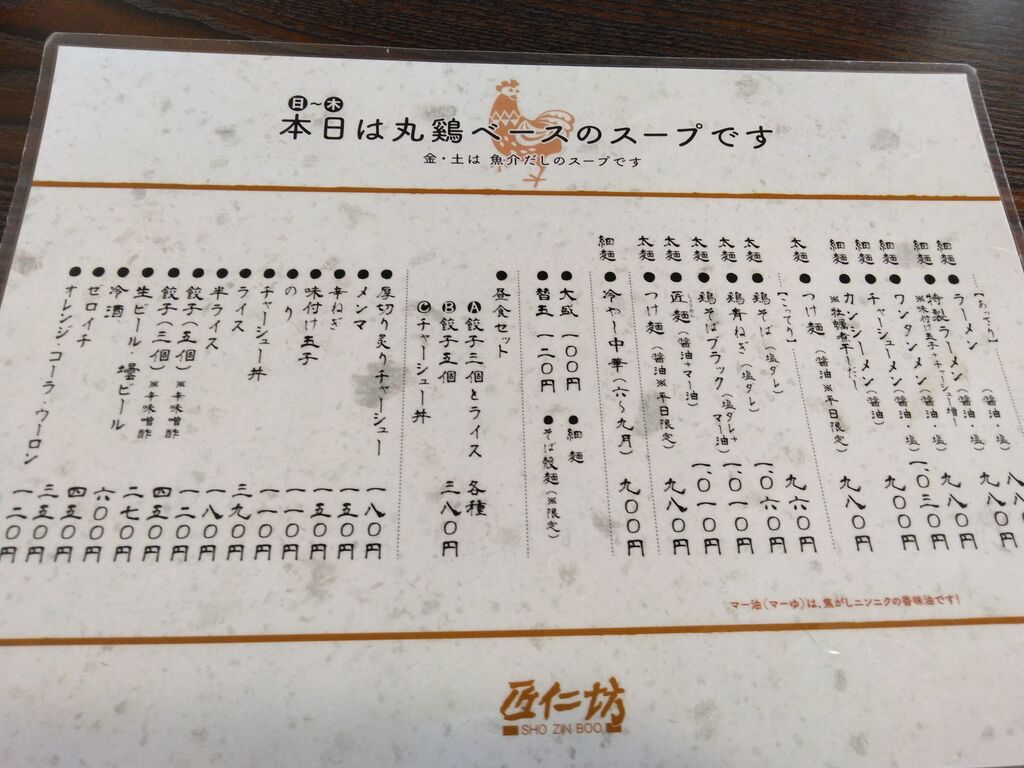 日～木
本日は丸鶏ベースのスープです
金・土は 魚介だしのスープです
【あってり】
細麺 ●ラーメン（醤油・塩）
●特製ラーメン（醤油・塩）
※味付け玉子＋チャーシュー増し
細麺 ●ワンタンメン（醤油・塩）
細麺 ●チャーシューメン（醤油）
細麺 九八〇円
※牡蠣煮干しだし
太麺 ●つけ麺（醤油※平日限定） 九六〇円
【こってり】
太麺 ●鶏そば（塩タレ） 一、〇六〇円
太麺 ●鶏青ねぎ（塩タレ） 一、〇一〇円
太麺 ●鶏そばブラック（塩タレ＋マー油） 一、〇一〇円
太麺 ●匠麺（醤油＋マー油） 九八〇円
太麺 ●つけ麺（醤油※平日限定）
細麺 ●冷やし中華（六～九月） 九〇〇円
●大盛 一〇〇円 ●細麺
●替玉 一二〇円 ●そば殻麺（※限定）
●昼食セット
Ⓐ餃子三個とライス 各種
Ⓑ餃子五個 三八〇円
Ⓒチャーシュー丼
●厚切り炙りチャーシュー 一八〇円
●メンマ 一五〇円
●辛ねぎ 一五〇円
●味付け玉子 一一〇円
●のり 一一〇円
●チャーシュー丼 三九〇円
●ライス 一八〇円
●半ライス 一二〇円
●餃子（五個）※辛味噌酢 四五〇円
●餃子（三個）※辛味噌酢 二七〇円
●生ビール・壜ビール 六〇〇円
●冷酒 四五〇円
●ゼロイチ 三五〇円
●オレンジ・コーラ・ウーロン 一二〇円
マー油（マーゆ）は、焦がしニンニクの香味油です！
匠仁坊
SHO ZIN BOO